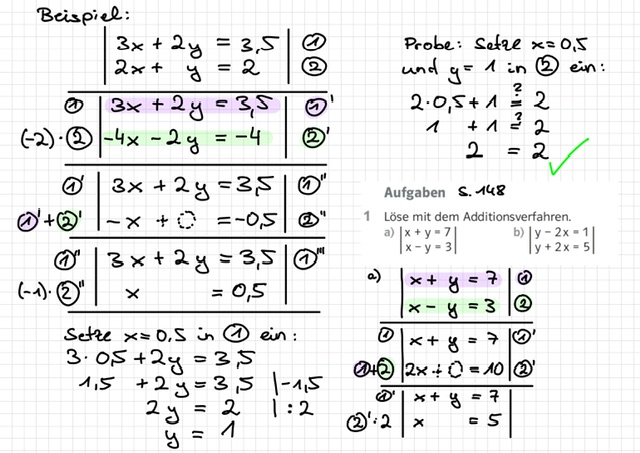 Beispiel:
| 3x + 2y = 3,5 | ①
| 2x + y = 2 | ②
① | 3x + 2y = 3,5 | ①'
(-2)·② | -4x - 2y = -4 | ②'
①' | 3x + 2y = 3,5 | ①''
①'+②' | -x + 0 = -0,5 | ②''
①'' | 3x + 2y = 3,5 | ①'''
(-1)·②'' | x = 0,5 |
Setze x = 0,5 in ① ein:
3·0,5 + 2y = 3,5
1,5 + 2y = 3,5 | -1,5
2y = 2 | :2
y = 1
Probe: Setze x = 0,5
und y = 1 in ② ein:
2·0,5 + 1 ≟ 2
1 + 1 ≟ 2
2 = 2 ✓
Aufgaben S. 148
1 Löse mit dem Additionsverfahren.
a) | x + y = 7 | b) | y − 2x = 1 |
| x − y = 3 | | y + 2x = 5 |
a) | x + y = 7 | ①
| x - y = 3 | ②
① | x + y = 7 | ①'
①+② | 2x + 0 = 10 | ②'
①' | x + y = 7 |
②':2 | x = 5 |